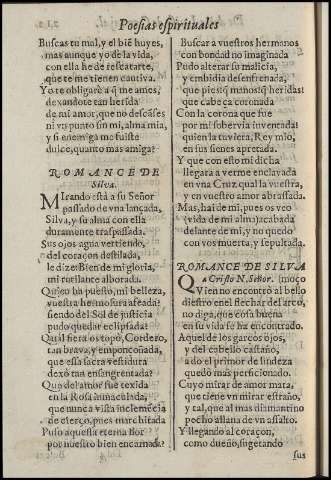 Poesias espirituales
Buscas tu mal, y el biẽ huyes,
mas aunque yo de la vida,
con ella he de rescatarte,
que te me tienen cautiva.
Yo te obligarè a q̃ me ames,
dexandote tan herida
de mi amor, que no descãses
ni vn punto sin mi, alma mia,
y si enemiga me fuiste
dulce, quanto mas amiga?
ROMANCE DE
Silva.
Mirando està a su Señor
passado de vna lançada,
Silvia, y su alma con ella
duramente traspassada.
Sus ojos agua vertiendo,
del coraçon destilada,
le dize: Bien de mi gloria,
mi rutilante alborada.
Quiẽ ha puesto, mi belleza,
vuestra hermosura afeada?
siendo del Sol de justicia
pudo quedar eclipsada?
Qual fiera os topò, Cordero,
tan brava, y emponçoñada,
que essa sacra vestidura
dexò tan ensangrentada?
Que del amor fue texida
en la Rosa inmaculada,
que nunca vista inclemẽcia
de cierço, pues marchitada
Puso aquessa eterna flor
por nuestro bien encarnada?
Buscar a vuestros hermanos
con bondad no imaginada
Pudo alterar su malicia,
y embidia desenfrenada,
que pies? q̃ manos? q̃ heridas?
que cabeça coronada
Con la corona que fue
por mi sobervia inventada!
quien la tuviera, Rey mio,
en sus sienes apretada.
Y que con esto mi dicha
llegara a verme enclavada
en vna Cruz qual la vuestra,
y en vuestro amor abrasada.
Mas, hai de mi, pues os veo
(vida de mi alma) acabada
delante de mi, y no quedo
con vos muerta, y sepultada.
ROMANCE DE SILVA
a Cristo N. Señor. (moço
Qvien no encontrò al bello
diestro en el flechar del arco,
no diga, que cosa buena
en su vida se ha encontrado.
Aquel de los garços ojos,
y del cabello castaño,
a do el primor de lindeza
quedò mas perficionado.
Cuyo mirar de amor mata,
que tiene vn mirar estraño,
y tal, que al mas diamantino
pecho allana de vn assalto.
Y llegando al coraçon,
como dueño, sugetando
sus